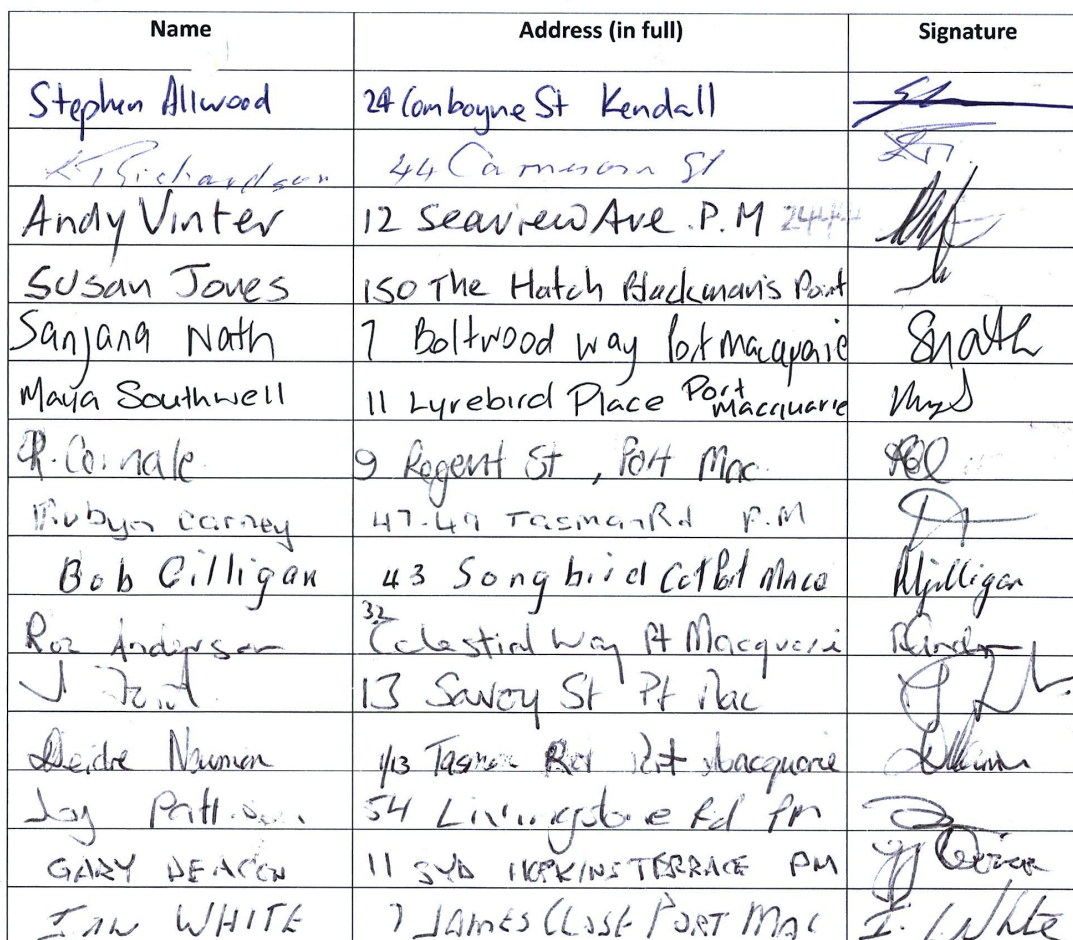 Name Address (in full) Signature
Stephen Allwood 24 Comboyne St Kendall
K Richardson 44 Cameron St
Andy Vinter 12 Seaview Ave. P.M 2444
Susan Jones 150 The Hatch Blackman's Point
Sanjana Nath 7 Boltwood way Port Macquarie Snath
Maya Southwell 11 Lyrebird Place Port Macquarie
R. Cornale 9 Regent St, Port Mac.
Robyn Carney 47-49 Tasman Rd P.M
Bob Gilligan 43 Songbird Cct Port Macq Rgilligan
Roz Anderson 32 Celestial Way Pt Macquarie
J 13 Savoy St Pt Mac
Deidre Neuman 1/13 Tasman Rd Port Macquarie
Joy 54 Livingstone Rd PM
GARY DEACON 11 SYD HOPKINS TERRACE PM
IAN WHITE 7 JAMES CLOSE PORT MAC I. White